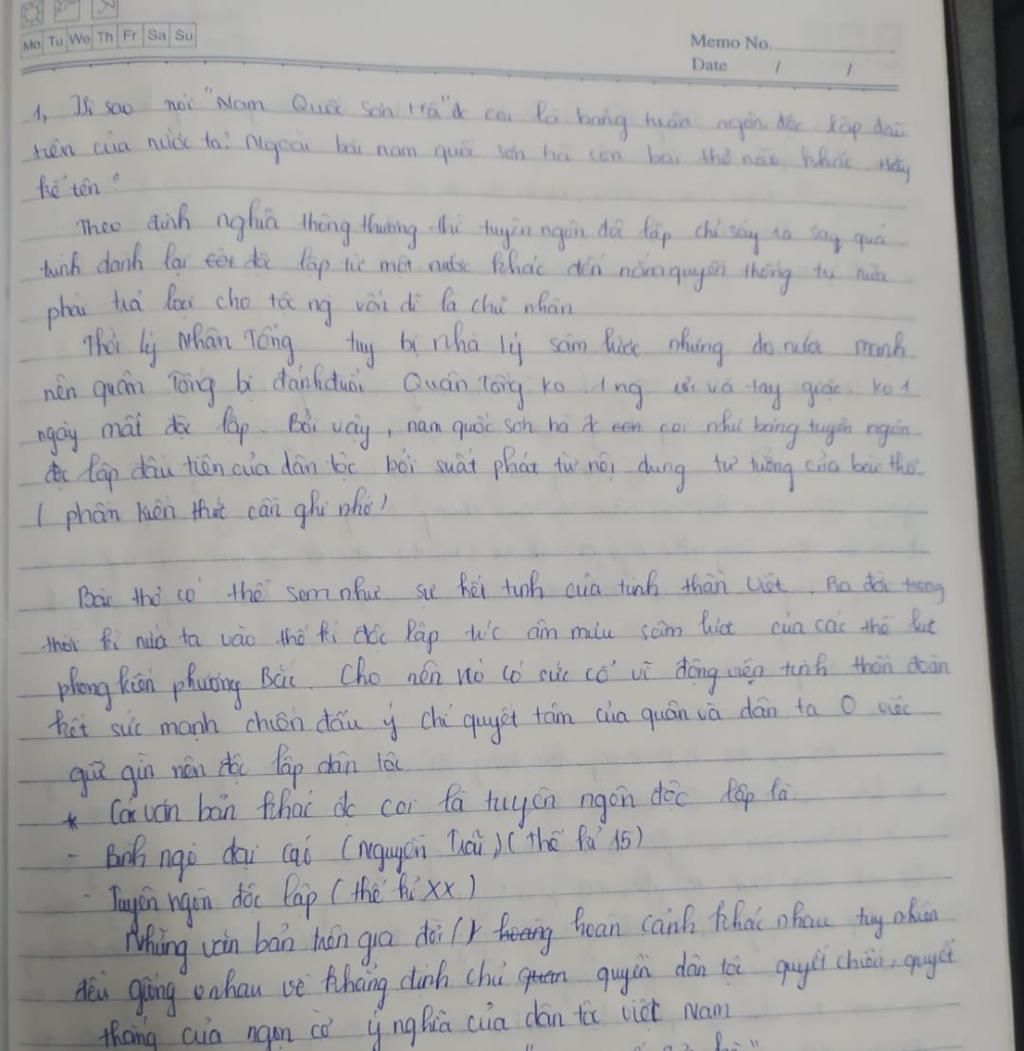 Mo Tu We Th Fr Sa Su
Memo No.
Date / /
1, Vì sao nói "Nam Quốc Sơn Hà" đc coi là bảng tuân ngôn độc lập đầu
tiên của nước ta? Ngoài bài nam quốc sơn hà còn bài thơ nào khác. Hãy
kể tên?
Theo định nghĩa thông thường thì tuyên ngôn độc lập chỉ sảy ra say quá
tình danh lại độc lập từ một nước khác đến nắm quyền thống trị nước
phải trả lại cho tôc ng vốn dĩ là chủ nhân
Thời lý Nhân Tông tuy bị nhà lý sâm lược nhưng do nước mạnh
nên quân Tông bị đánh đuổi Quân Tông ko 1 ng và tay giặc. ko 1
ngày mất độc lập. Bởi vậy, nam quốc sơn hà đc coi như bảng tuyên ngôn
độc lập đầu tiên của dân tộc bởi suất phát từ nội dung tư tưởng của bài thơ
( phần kiến thức cần ghi nhớ)
Bài thơ có thể sem như sự kết tinh của tinh thần việt. Ra đời trong
thời kì nước ta vào thế kỉ độc lập tức âm mưu sâm lược của các thế lực
phong kiến phương Bắc. Cho nên nó có sức cổ vũ động viện tinh thần đoàn
kết sức mạnh chiến đấu ý chí quyết tâm của quân và dân ta O việc
giữ gìn nền độc lập dân tôc
* Các văn bản khác đc coi là tuyên ngôn độc lập là
- Bình ngô đại cáo (Nguyễn Trãi) (thế kỉ 15)
- Tuyên ngôn độc lập (thế kỉ XX)
Những văn bản trên gia đời hoàn cảnh khác nhau tuy nhiên
đều giống nhau về khẳng định chủ quyền dân tộc quyết chiến, quyết
thắng của ngọn cờ ý nghĩa của dân tôc việt Nam